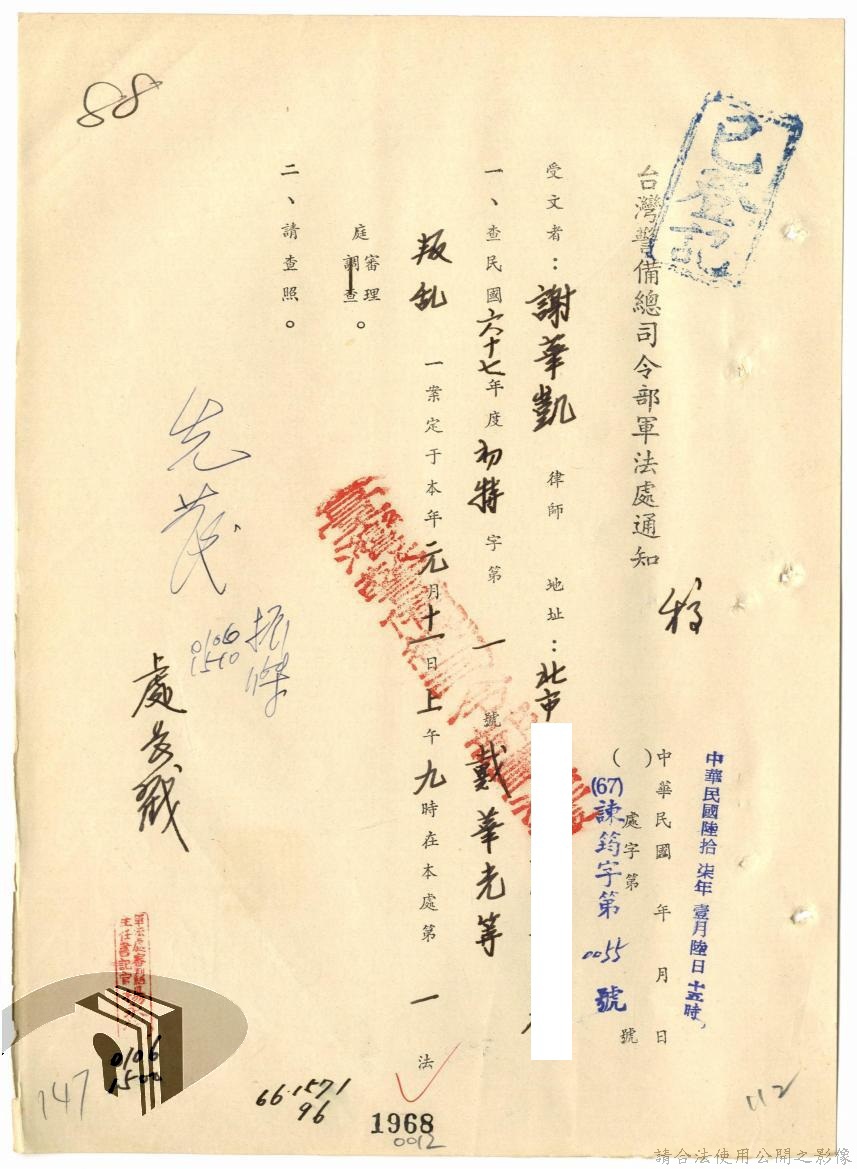 88
已登記
台灣警備總司令部軍法處通知 稿
中華民國陸拾柒年壹月陸日十五時
中華民國 年 月 日
( ) 處字第 號
(67)諫筠字第0055號
受文者：謝華凱 律師 地址：北市
一、查民國六十七年度初特字第一號戴華光等
叛乱一案定于本年元月十一日上午九時在本處第一法
庭審理調查。
二、請查照。
先茂
振傑
0106
1510
處長戳
軍法處審判組
主任書記官
0106
1500
147
66.1571
96
1968
0012
112
請合法使用公開之影像